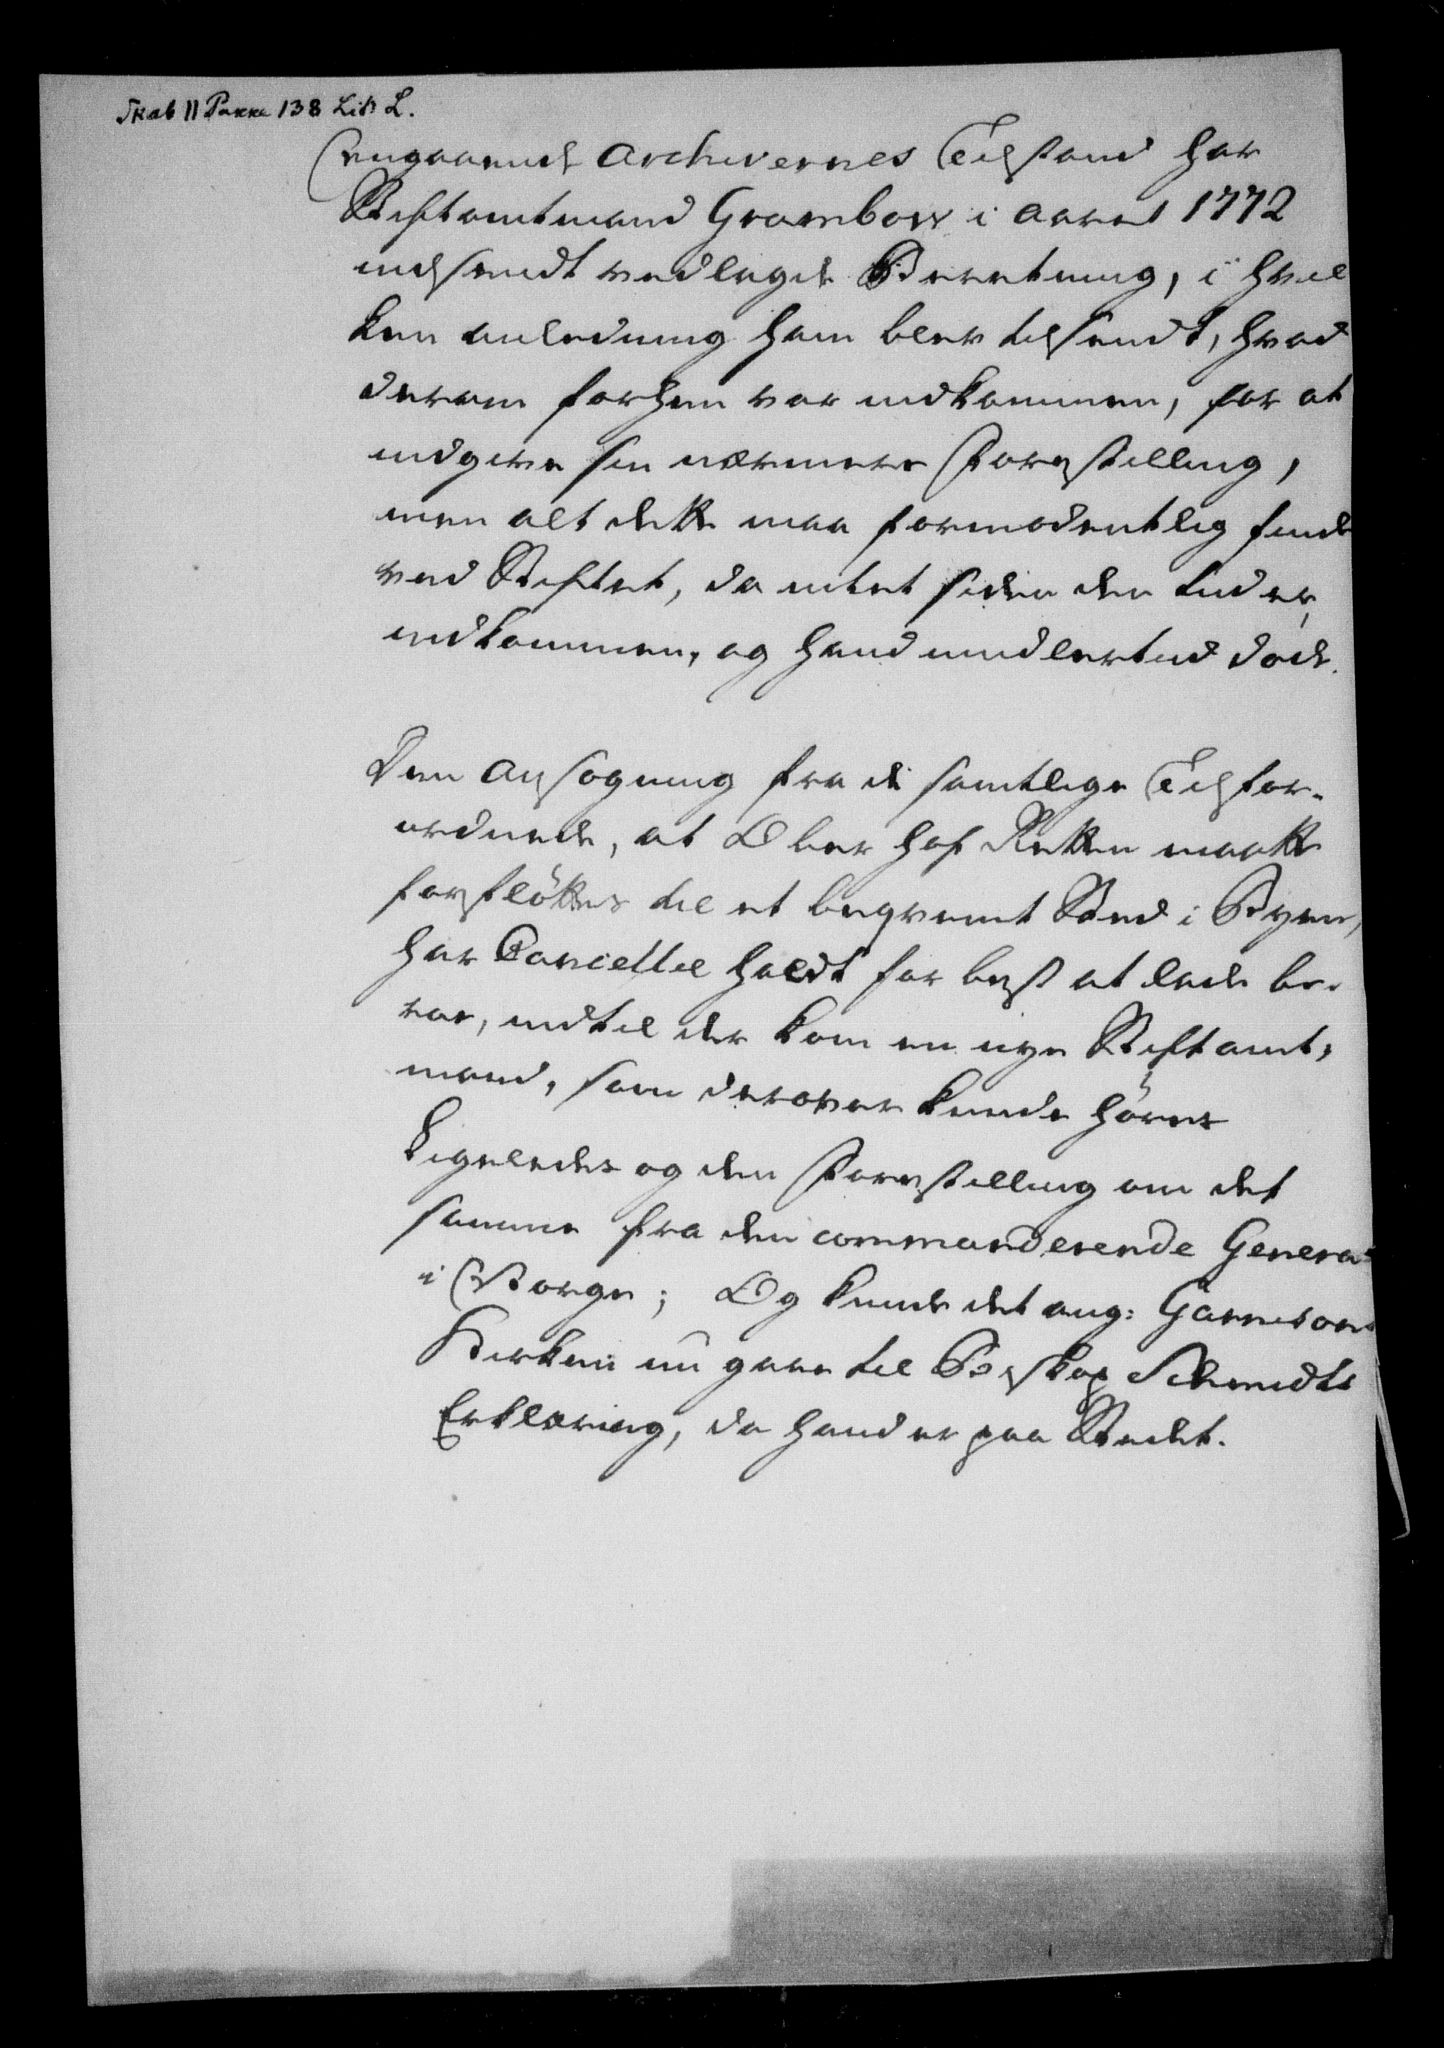 Skab 11 Pakke 138 Lit L.
Angaaende Archivernes Tilstand har
Stiftamtmand Grambow i Aaret 1772
indsendt vedlagde Beretning, i hvil
ken anledning ham blev tilsendt, hvad
derom forhen var indkommen, for at
indgive sin nærmere Forestilling,
men alt dette maa formodentlig finde
ved Stiftet, da intet siden den tid er
indkommen, og hand imidlertid døde.
Den Ansøgning fra de samtlige Tilfor-
ordnede, at Over Hof Retten maatte
forfløttes til et beqvemt Sted i Byen,
har Cancellie holdt for best at lade be-
roe, indtil der kom en nye Stiftamt,
mand, som derover kunde høres
Ligeledes og den Forestilling om det
samme fra den commanderende General
i Norge; Og kunde det ang: Garnisons
Kirken nu gaae til Biskop Schmidts
Erklæring, da hand er paa Stedet.